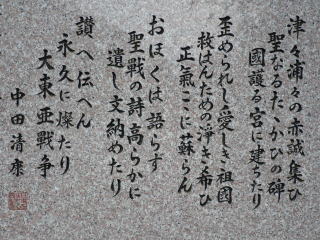 津々浦々の赤誠集ひ
聖なるたゝかひの碑
國護る宮に建ちたり
歪められし愛しき祖國
救はんための浄き希ひ
正氣こゝに蘇らん
おほくは語らず
聖戦の詩高らかに
遺し文納めたり
讃へ伝へん
永久に燦たり
大東亜戦争
中田清康